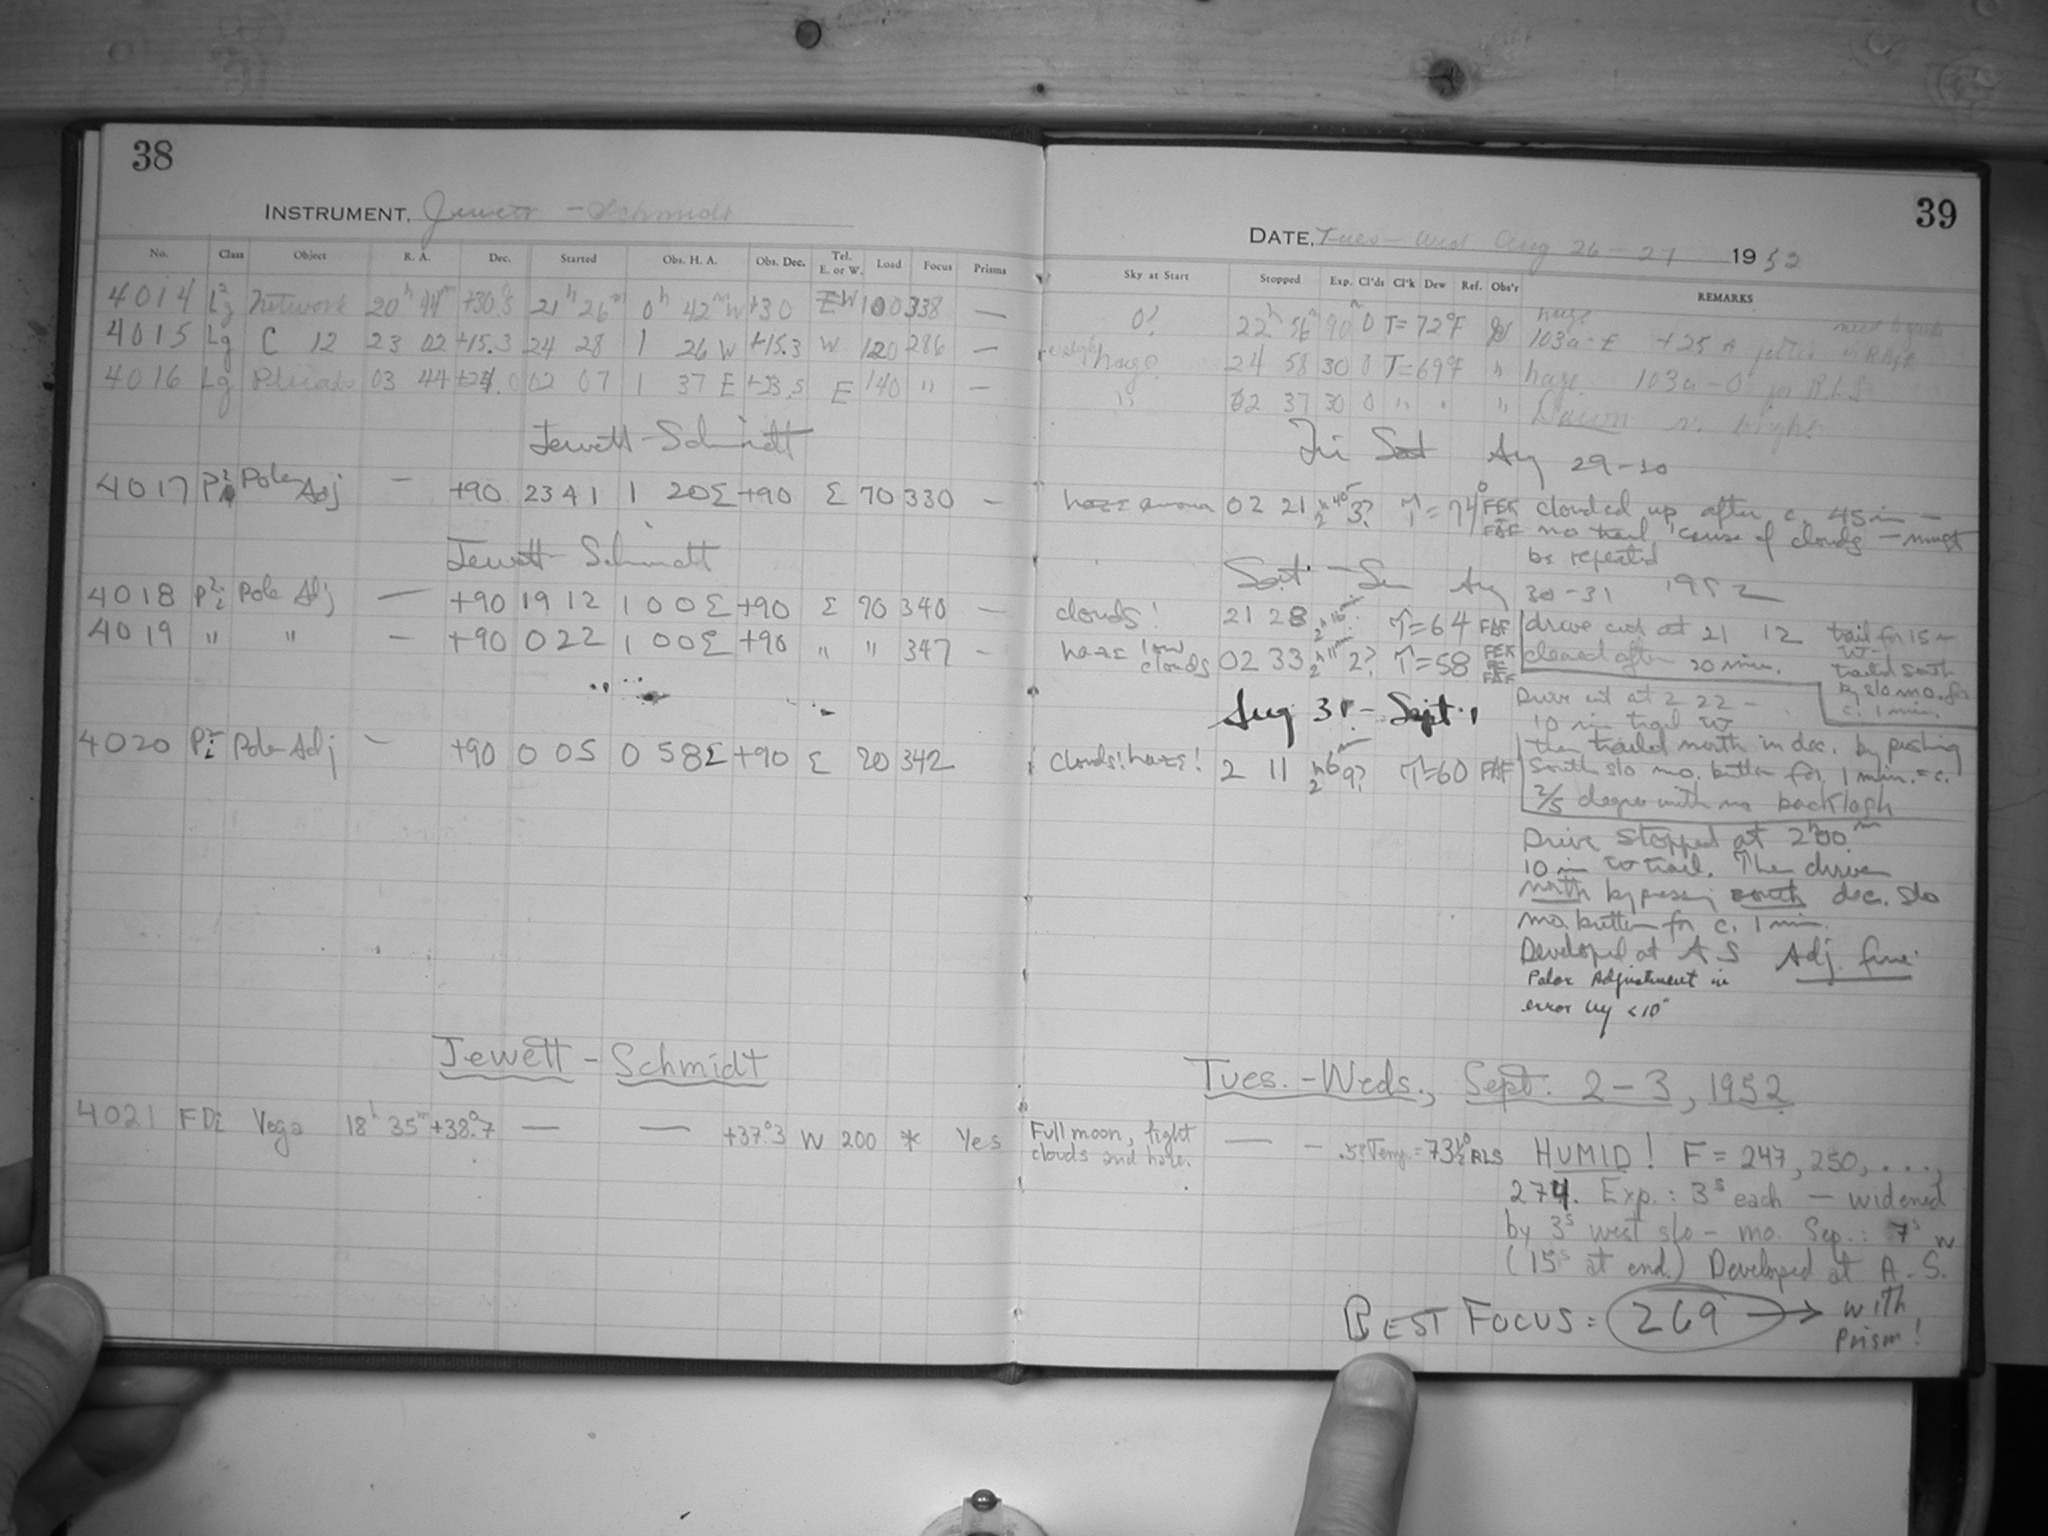 38
INSTRUMENT, Jewett - Schmidt
No. Class Object R. A. Dec. Started Obs. H. A. Obs. Dec. Tel. E. or W. Load Focus Prisms
4014 Network 20h 44m +30.5 21h 26m 0h 42m W +30 W 100 338 —
4015 Lg C 12 23 02 +15.3 24 28 1 26 W +15.3 W 120 286 —
4016 Lg 03 44 02 07 1 37 E +23.5 E 140 " —
Jewett - Schmidt
4017 Pole Adj — +90 23 41 1 20 E +90 E 70 330 —
Jewett - Schmidt
4018 Pole Adj — +90 19 12 1 00 E +90 E 70 340 —
4019 " " — +90 0 22 1 00 E +90 " " 347 —
4020 Pole Adj — +90 0 05 0 58 E +90 E 20 342
Jewett - Schmidt
4021 FDi Vega 18h 35m +38.°7 — — +37.°3 W 200 * Yes
39
DATE, Tues - Wed Aug 26 - 27 1952
Sky at Start Stopped Exp. Cl'ds Cl'k Dew Ref. Obs'r REMARKS
0? 22h 56m 90m 0 T = 72°F haze 103a-E
haze 24 58 30 0 T = 69°F " haze 103a-O for R.L.S
" 02 37 30 0 " " " Dawn v. bright
Fri Sat Aug 29-30
haze 02 21 2h 40m 3? T = 74° FEK FAF clouded up after c. 45 min —
no trail 'cause of clouds — must
be repeated
Sat - Sun Aug 30-31 1952
clouds! 21 28 T = 64 FAF drive cut at 21 12 trail for 15 m
W -
haze low clouds 02 33 2h 11m 2? T = 58 FEK FAF cleared after 20 min.
trailed south
by slo mo. for
c. 1 min.
Aug 31 - Sept. 1
Drive cut at 2 22 —
10 min trail W
then trailed north in dec. by pushing
clouds! haze! 2 11 2h 6m 9? T = 60 FAF
South slo mo. button for 1 min. = c.
2/5 degree with no backlash
Drive stopped at 2h00m
10 min W trail. Then driven
north by pressing south dec. slo
mo. button for c. 1 min.
Developed at A S Adj. fine
Polar Adjustment in
error by < 10"
Tues. - Weds., Sept. 2 - 3, 1952
Full moon, light clouds and haze. — — Temp. = 73½° RLS HUMID! F = 247, 250, ...,
274. Exp.: 3s each — widened
by 3s west slo - mo. Sep.: 7s W
(15s at end.) Developed at A. S.
BEST FOCUS = 269 → with
Prism!